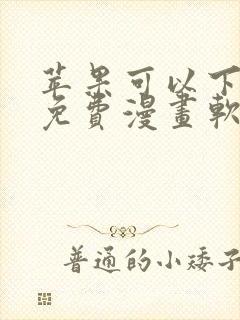 苹果可以下
免費漫畫軟
普通的小矮子